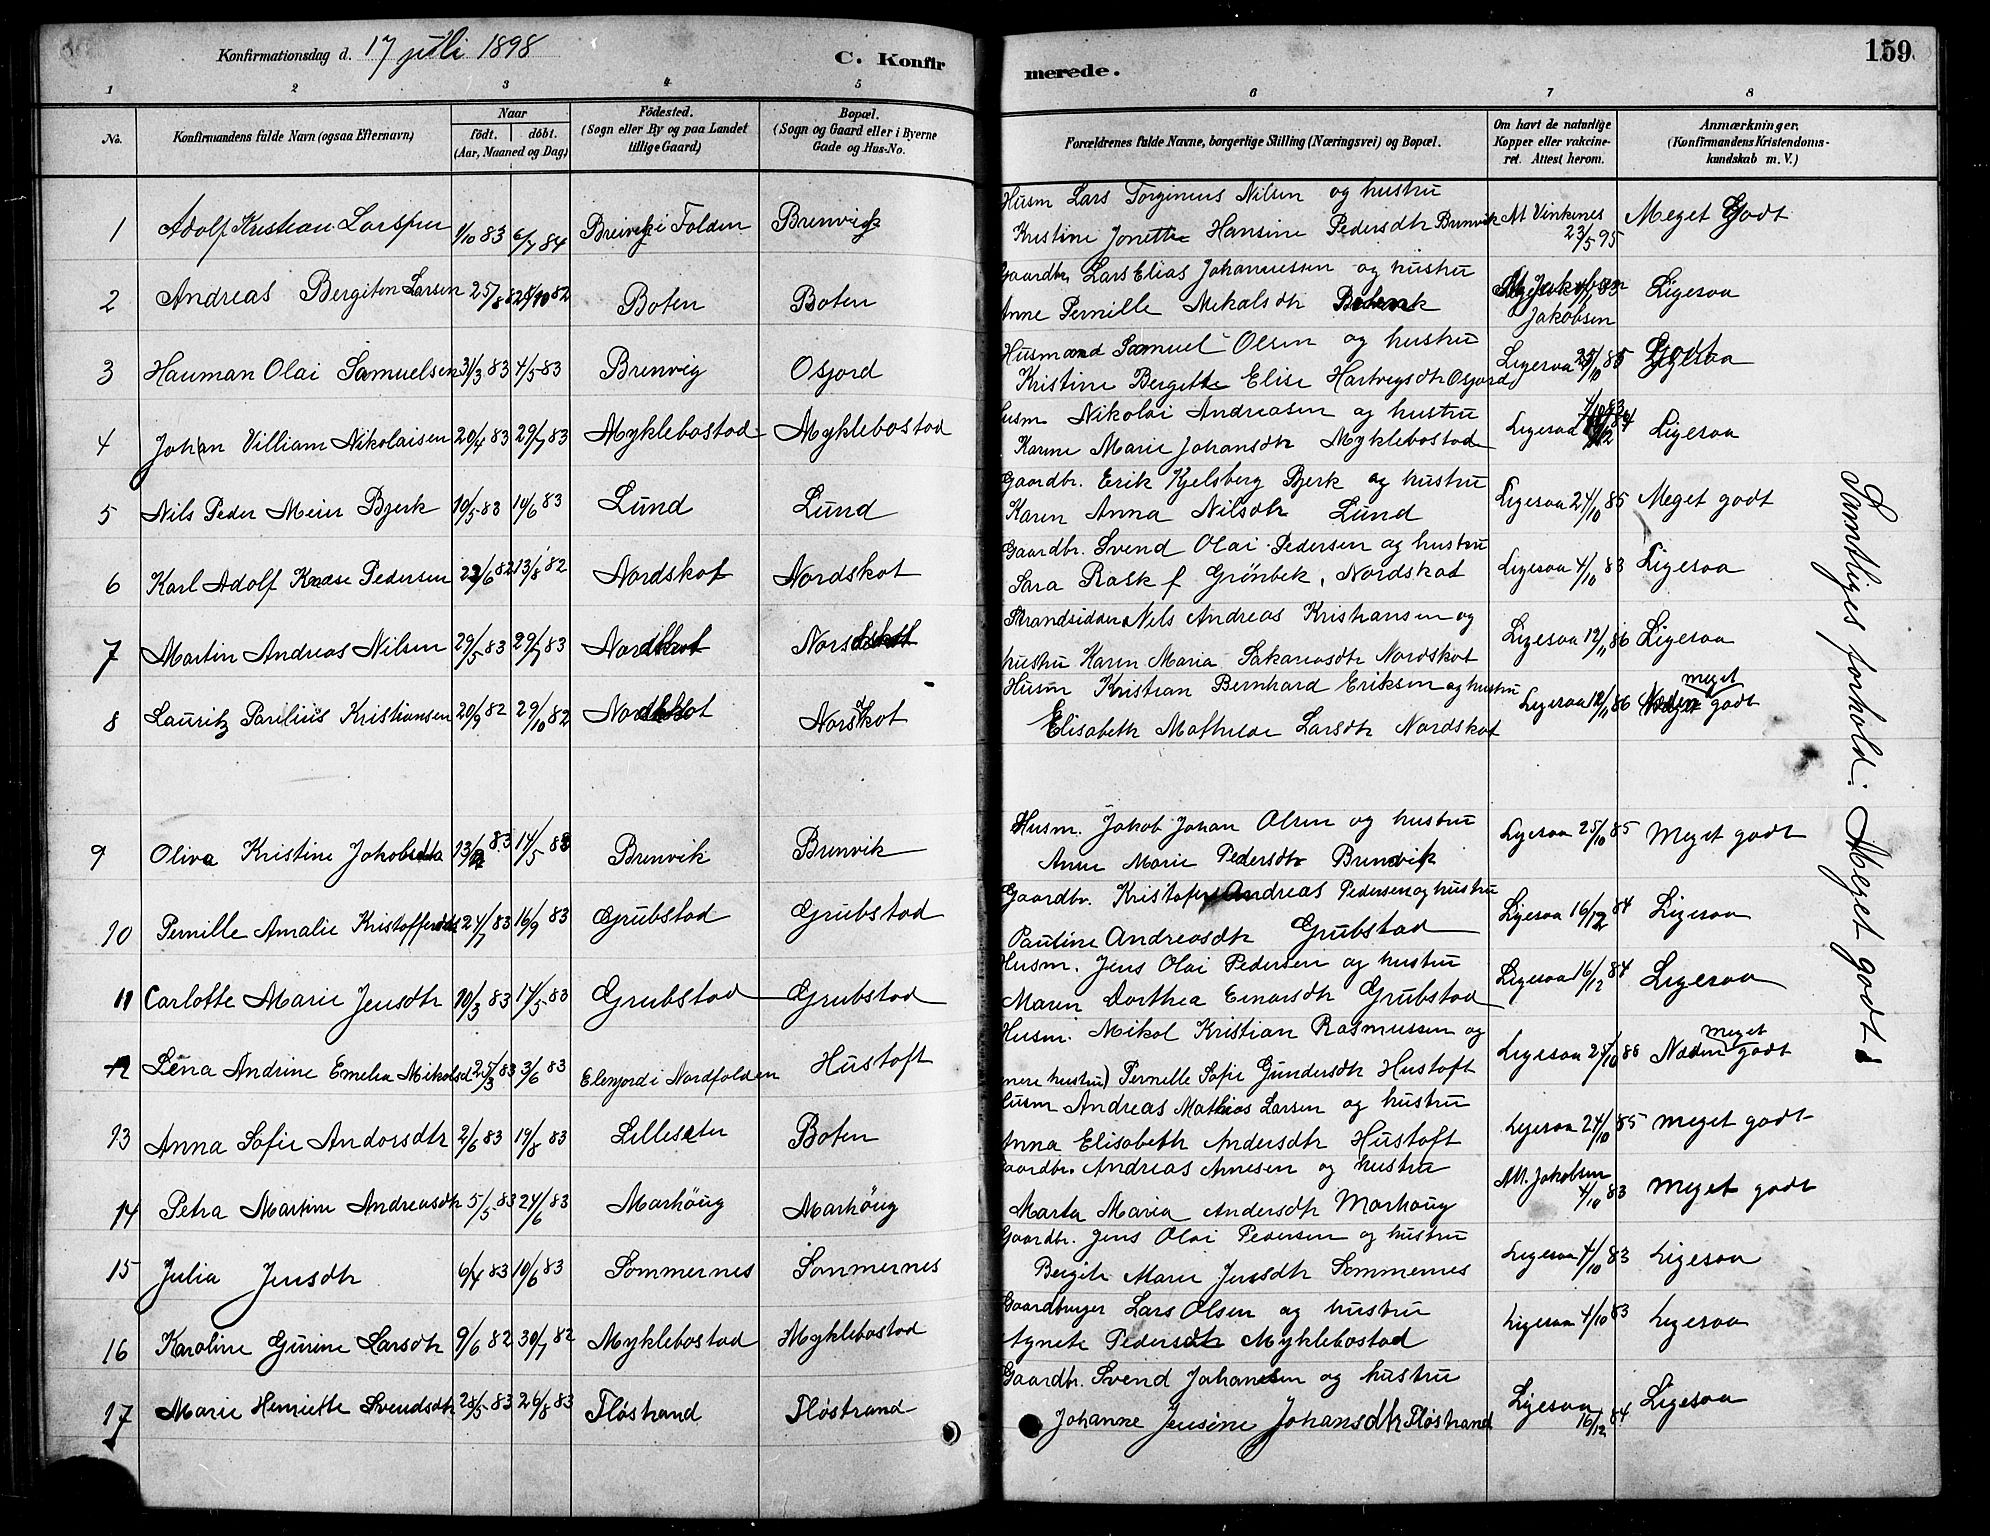 Konfirmationsdag d. 17 juli 1898
C. Konfirmerede.
159
1 2 3 4 5 6 7 8
No.
Konfirmandens fulde Navn (ogsaa Efternavn)
Naar
födt. döbt.
(Aar, Maaned og Dag)
Födested.
(Sogn eller By og paa Landet tillige Gaard)
Bopæl.
(Sogn og Gaard eller i Byerne Gade og Hus-No.
Forældrenes fulde Navne, borgerlige Stilling (Næringsvei) og Bopæl.
Om havt de naturlige Kopper eller vakcineret. Attest herom.
Anmærkninger.
(Konfirmandens Kristendomskundskab m. V.)
1 Adolf Kristian Larsen 1/10 83 6/7 84 Breivik i Folden Brenvigk Husm Lars Torginus Nilsen og hustru
Kristine Jonette Hansine Pedersdtr Brenvik At Vinkenes 23/5 95 Meget Godt
2 Andreas Bergiton Larsen 25/8 82 Boten Boten Gaardbr. Lars Elias Johannessen og hustru
Anne Pernille Mekalsdtr Jakobsen Ligesaa
3 Hauman Olai Samuelsen 31/3 83 4/5 83 Brenvig Osjord Husmand Samuel Olsen og hustru
Kristine Bergette Elise Hartvigsdtr Osjord Ligesaa 25/10 85 Godt
4 Johan Villiam Nikolaisen 20/4 83 29/7 83 Myklebostad Myklebostad Husm. Nikolai Andreasen og hustru
Karine Marie Johansdtr Myklebostad Ligesaa Ligesaa
5 Nils Peder Meier Bjerk 10/5 83 10/6 83 Lund Lund Gaardbr. Erik Kjelsberg Bjerk og hustru
Karen Anna Nilsdtr Lund Ligesaa 24/10 85 Meget godt
6 Karl Adolf Knøse Pedersen 23/6 82 13/8 82 Nordskot Nordskot Gaardbr. Svend Olai Pedersen og hustru
Sara Rask f Grönbek, Nordskot Ligesaa 4/10 83 Ligesaa
7 Martin Andreas Nilsen 29/5 83 29/7 83 Nordskot Nordskot Strandsidder Nels Andreas Kristiansen og
hustru Karen Maria Sakariasdtr Nordskot Ligesaa 12/11 86 Ligesaa
8 Lauritz Parilius Kristiansen 20/9 82 29/10 82 Nordskot Nordskot Husm Kristian Bernhard Eriksen og hustru
Elisabeth Mathilde Larsdtr Nordskot Ligesaa 12/11 86 Næsten meget godt
9 Oliva Kristine Jakobsdtr 14/5 83 Brenvik Brenvik Husm. Jakob Johan Olsen og hustru
Anne Marie Pedersdtr Brenvik Ligesaa 25/10 85 Meget godt
10 Pernille Amalie Kristoffersdtr 24/7 83 16/9 83 Grubstad Grubstad Gaardbr. Kristofer Andreas Pedersen og hustru
Pauline Andreasdtr Grubstad Ligesaa 16/12 84 Ligesaa
11 Carlotte Marie Jensdtr 10/3 83 14/5 83 Grubstad Grubstad Husm. Jens Olai Pedersen og hustru
Maren Dorthea Einarsdtr Grubstad Ligesaa 16/12 84 Ligesaa
12 Lena Andrine Emelia Mikolsd 25/3 83 3/6 83 Elenjord i Nordfolden Hustoft Husm. Mikol Kristian Rasmussen og
hustru Pernelle Sofie Gundersdtr Hustoft Ligesaa Næsten meget godt
13 Anna Sofie Andorsdtr 2/6 83 19/8 83 Lilleseter Boten Husm Andreas Mathias Larsen og hustru
Anna Elisabeth Andersdtr Hustoft Ligesaa 24/10 85 meget godt
14 Petra Martine Andreasdtr 5/5 83 24/6 83 Marhöug Marhöug Gaardbr. Andreas Arnesen og hustru
Marta Maria Andersdtr Marhoug Att. Jakobsen 4/10 83 meget godt
15 Julia Jensdtr 6/4 83 10/6 83 Sommernes Sommernes Gaardbr. Jens Olai Pedersen og hustru
Bergite Marie Jensdtr Sommernes Ligesaa 4/10 83 Ligesaa
16 Karoline Gurine Larsdtr 9/6 82 30/7 82 Myklebostad Myklebostad Gaardbruger Lars Olsen og hustru
Agnete Pedersdtr Myklebostad Ligesaa 4/10 83 Ligesaa
17 Marie Henriette Svendsdtr 28/5 83 26/8 83 Flöstrand Flöstrand Gaardbr. Svend Johansen og hustru
Johanne Jensine Johansdtr Flöstrand Ligesaa 16/12 84 Ligesaa
Samtliges forhold: Meget godt!